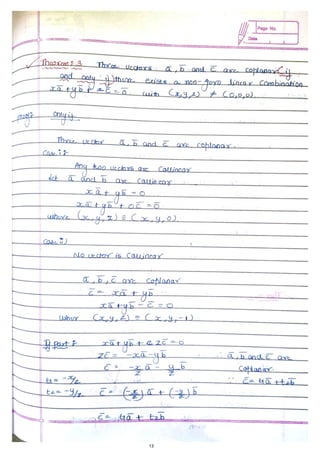 Page No.
Date
Theorem 3 Three vectors ā, b̄ and c̄ are coplanar if
and only if there exists a non-zero linear combination
xā + yb̄ + zc̄ = ō with (x,y,z) ≠ (0,0,0).
proof only if
Three vector ā, b̄ and c̄ are coplanar.
Case i)
Any two vectors are Callinear
let ā and b̄ are Callinear
xā + yb̄ = 0
xā + yb̄ + 0c̄ = ō
where (x, y, z) = (x, y, 0)
Case ii)
No vector is Callinear
ā, b̄, c̄ are coplanar
c̄ = xā + yb̄
xā + yb̄ - c̄ = 0
where (x, y, z) = (x, y, -1)
If part : xā + yb̄ + zc̄ = 0
zc̄ = -xā - yb̄ ∴ ā, b̄ and c̄ are
c̄ = -x/z ā - y/z b̄ Coplanar
t1 = -x/z ∴ c̄ = t1ā + t2b̄
t2 = -y/z c̄ = (-x/z) ā + (-y/z) b̄
c̄ = t1ā + t2b̄
13